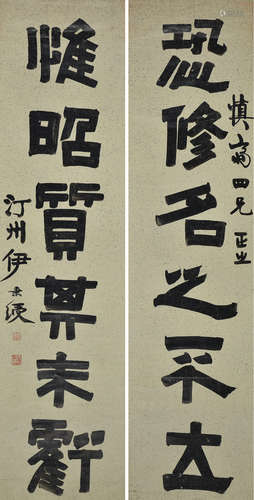 恐修名之不立
慎四兄正之
惟昭質其未虧
汀州伊秉綬